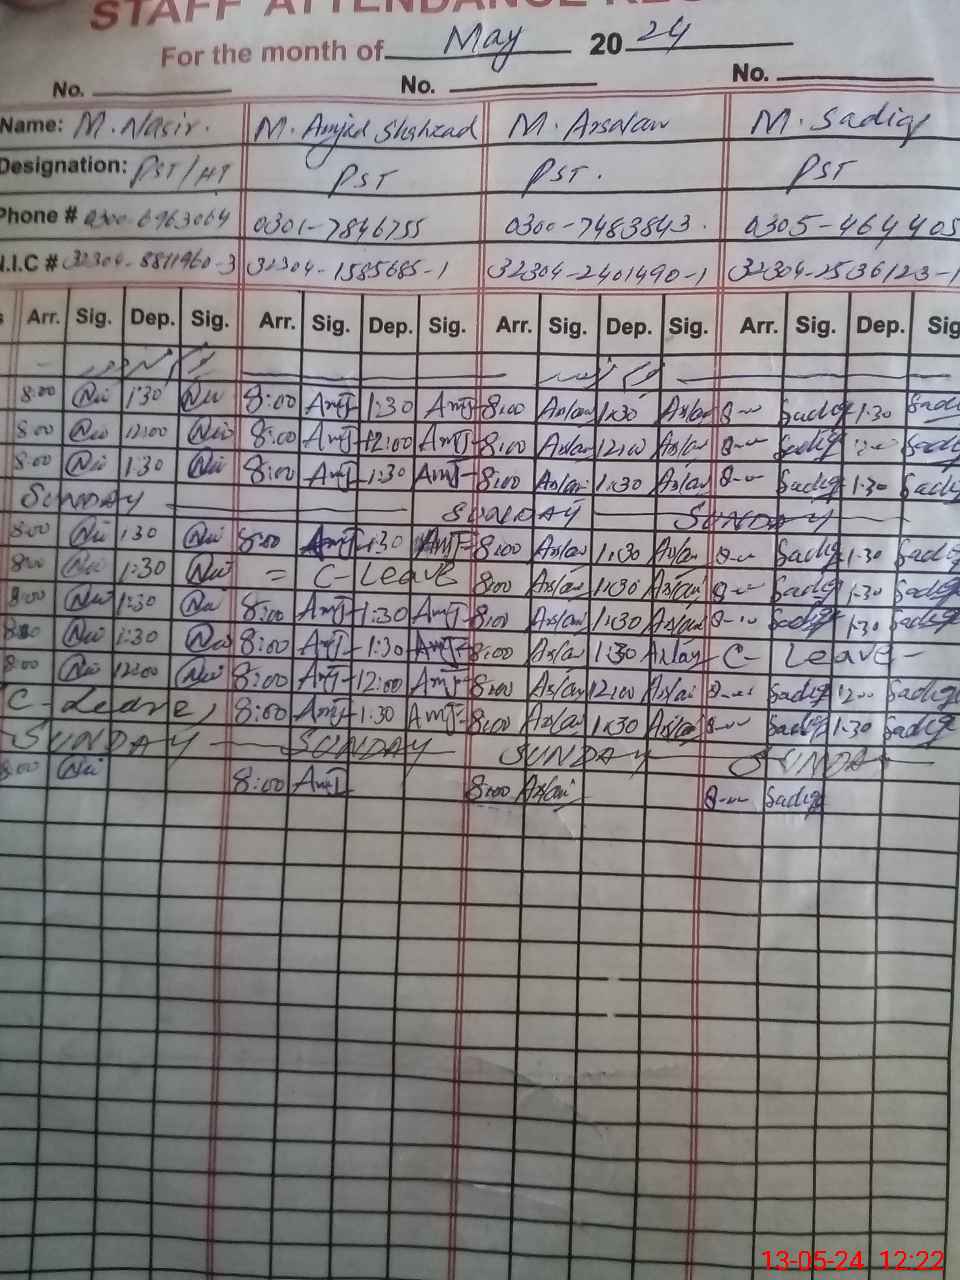 STAFF ATTENDANCE RE
For the month of May 20 24
No. No. No.
Name: M. Nasir. M. Amjad Shahzad M. Arsalan M. Sadiq
Designation: PST/HT PST PST. PST
Phone # 0300-6963064 0301-7846755 0300-7483843. 0305-464405
N.I.C # 32304-8811960-3 32304-1585685-1 32304-2401490-1 32304-2536123-1
s Arr. Sig. Dep. Sig. Arr. Sig. Dep. Sig. Arr. Sig. Dep. Sig. Arr. Sig. Dep. Sig
8:00 1:30 8:00 AmJ 1:30 AmJ 8:00 Arslan 1:30 Arslan 8-- Sadiq 1:30 Sadi
8:00 12:00 8:00 AmJ 12:00 AmJ 8:00 Arslan 12:00 Arslan 8-- Sadiq Sadiq
8:00 1:30 8:00 AmJ 1:30 AmJ 8:00 Arslan 1:30 Arslan 8-- Sadiq 1:30 Sadiq
SUNDAY SUNDAY SUNDAY
8:00 1:30 8:00 AmJ 1:30 AmJ 8:00 Arslan 1:30 Arslan 8-- Sadiq 1:30 Sadiq
8:00 1:30 = C-Leave 8:00 Arslan 1:30 Arslan 8-- Sadiq 1:30 Sadiq
8:00 1:30 8:00 AmJ 1:30 AmJ 8:00 Arslan 1:30 Arslan 8-- Sadiq 1:30 Sadiq
8:00 1:30 8:00 AmJ 1:30 AmJ 8:00 Arslan 1:30 Arslan C- Leave-
8:00 12:00 8:00 AmJ 12:00 AmJ 8:00 Arslan 12:00 Arslan 8-- Sadiq 12:00 Sadiq
C-Leave, 8:00 AmJ 1:30 AmJ 8:00 Arslan 1:30 Arslan 8-- Sadiq 1:30 Sadiq
SUNDAY SUNDAY SUNDAY SUNDAY
8:00 8:00 AmJ 8:00 Arslan 8-- Sadiq
13-05-24 12:22